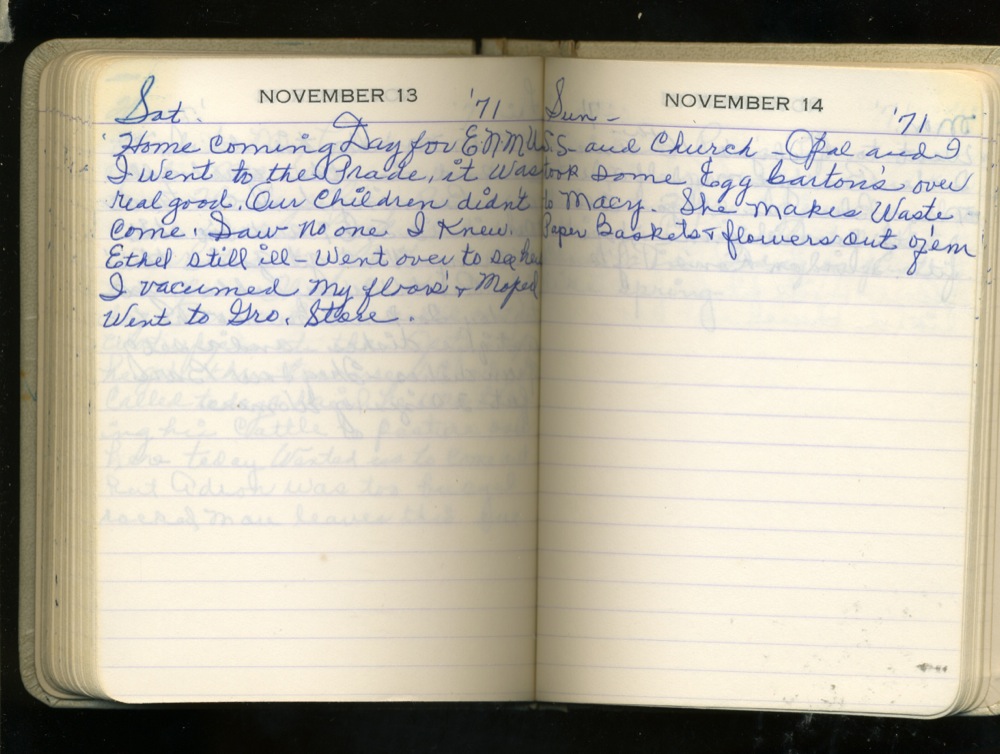 NOVEMBER 13
Sat. '71
Home coming Day for ENMU
I Went to the Prade, it Was
real good. Our Children didn't
Come. Saw no one I Knew.
Ethel still ill - Went over to see her
I vacumed My floors & Moped
Went to Gro. Store.
NOVEMBER 14
Sun - '71
S.S. and Church - Opal and I
took some Egg Carton's over
to Macy. She Makes Waste
Paper Baskets & flowers out of 'em